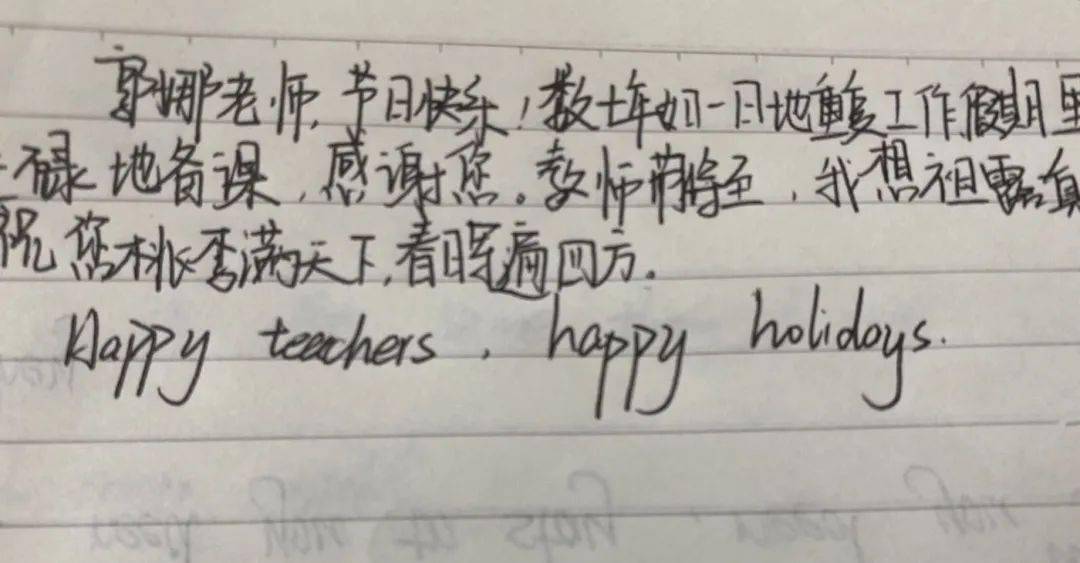 郭娜老师,节日快乐!数十年如一日地重复工作假期里
碌地备课,感谢您。教师节将至,我想袒露真
祝您桃李满天下,春晖遍四方。
Happy teachers, happy holidays.